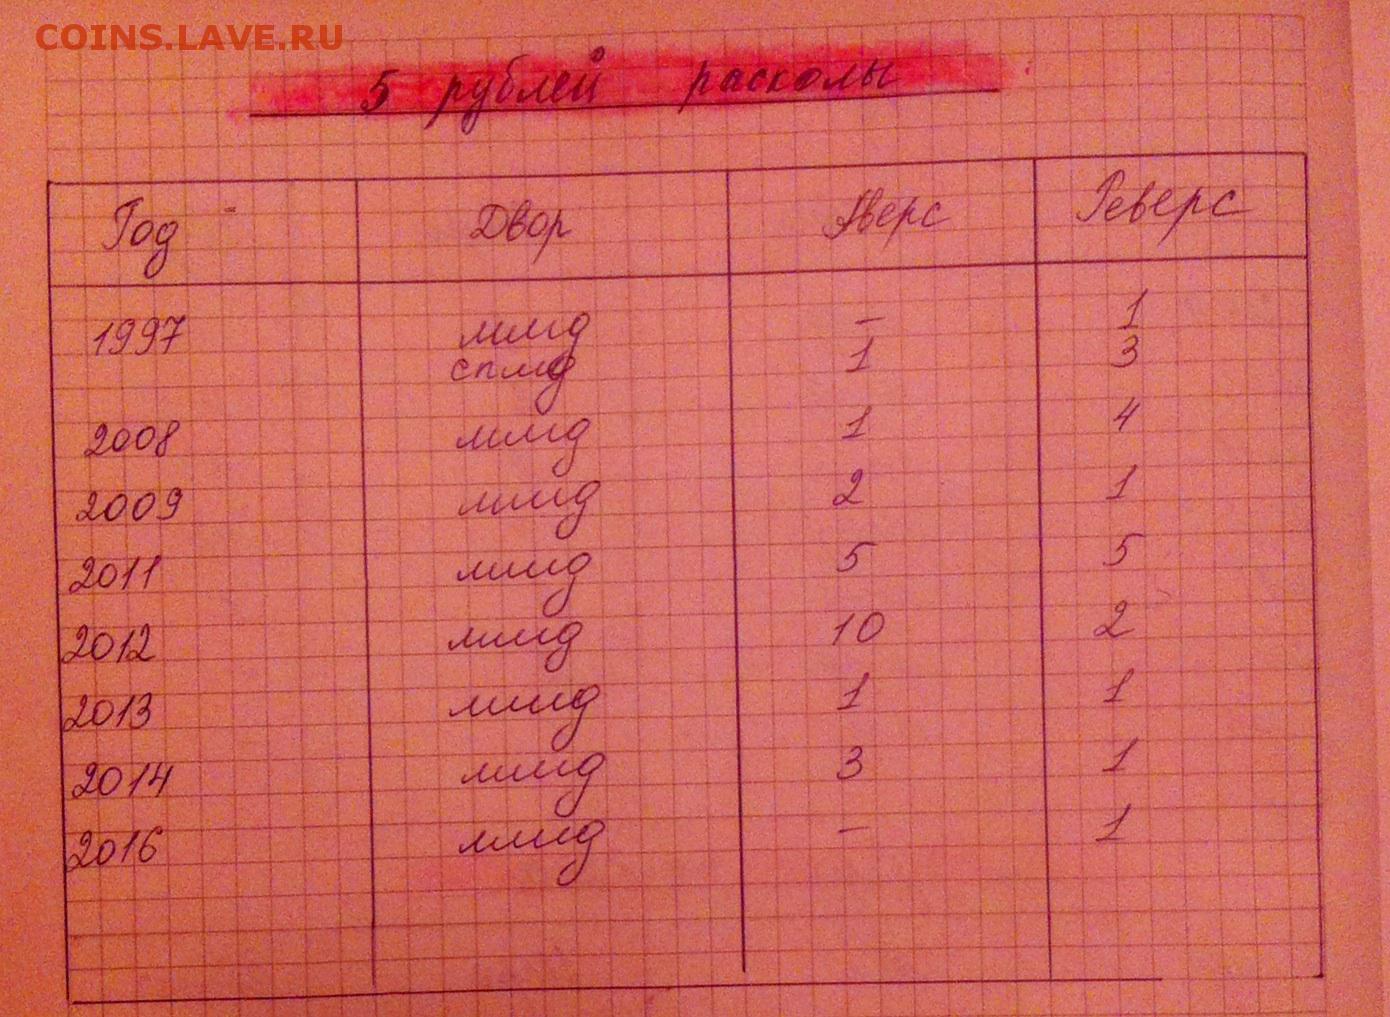 COINS.LAVE.RU
5 рублей расколы
Год Двор Аверс Реверс
1997 ммд – 1
спмд 1 3
2008 ммд 1 4
2009 ммд 2 1
2011 ммд 5 5
2012 ммд 10 2
2013 ммд 1 1
2014 ммд 3 1
2016 ммд – 1